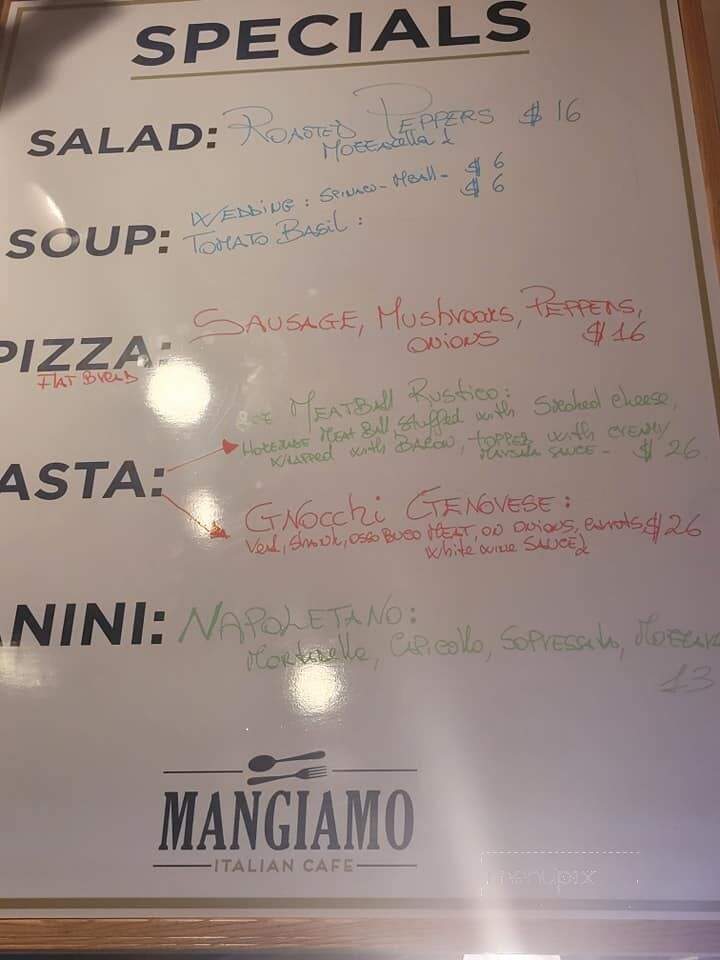 SPECIALS
SALAD: ROASTED PEPPERS $16
MOZZARELLA
SOUP: WEDDING: SPINACO-MBALL- $6
TOMATO BASIL: $6
PIZZA: SAUSAGE, MUSHROOMS, PEPPERS,
FLAT BREAD ONIONS $16
MEATBALL RUSTICO:
HOMEMADE MEAT BALL, STUFFED with SMOKED CHEESE,
WRAPPED with BACON, TOPPED with CREAMY
ASTA: MARSALA SAUCE- $26
GNOCCHI GENOVESE:
VEAL, SHANK, OSSO BUCO MEAT, ONIONS, CARROTS $26
WHITE WINE SAUCE
ANINI: NAPOLETANO:
MORTADELLA, CAPICOLLO, SOPRESSATA, MOZZAR
13
MANGIAMO
ITALIAN CAFE
menupix